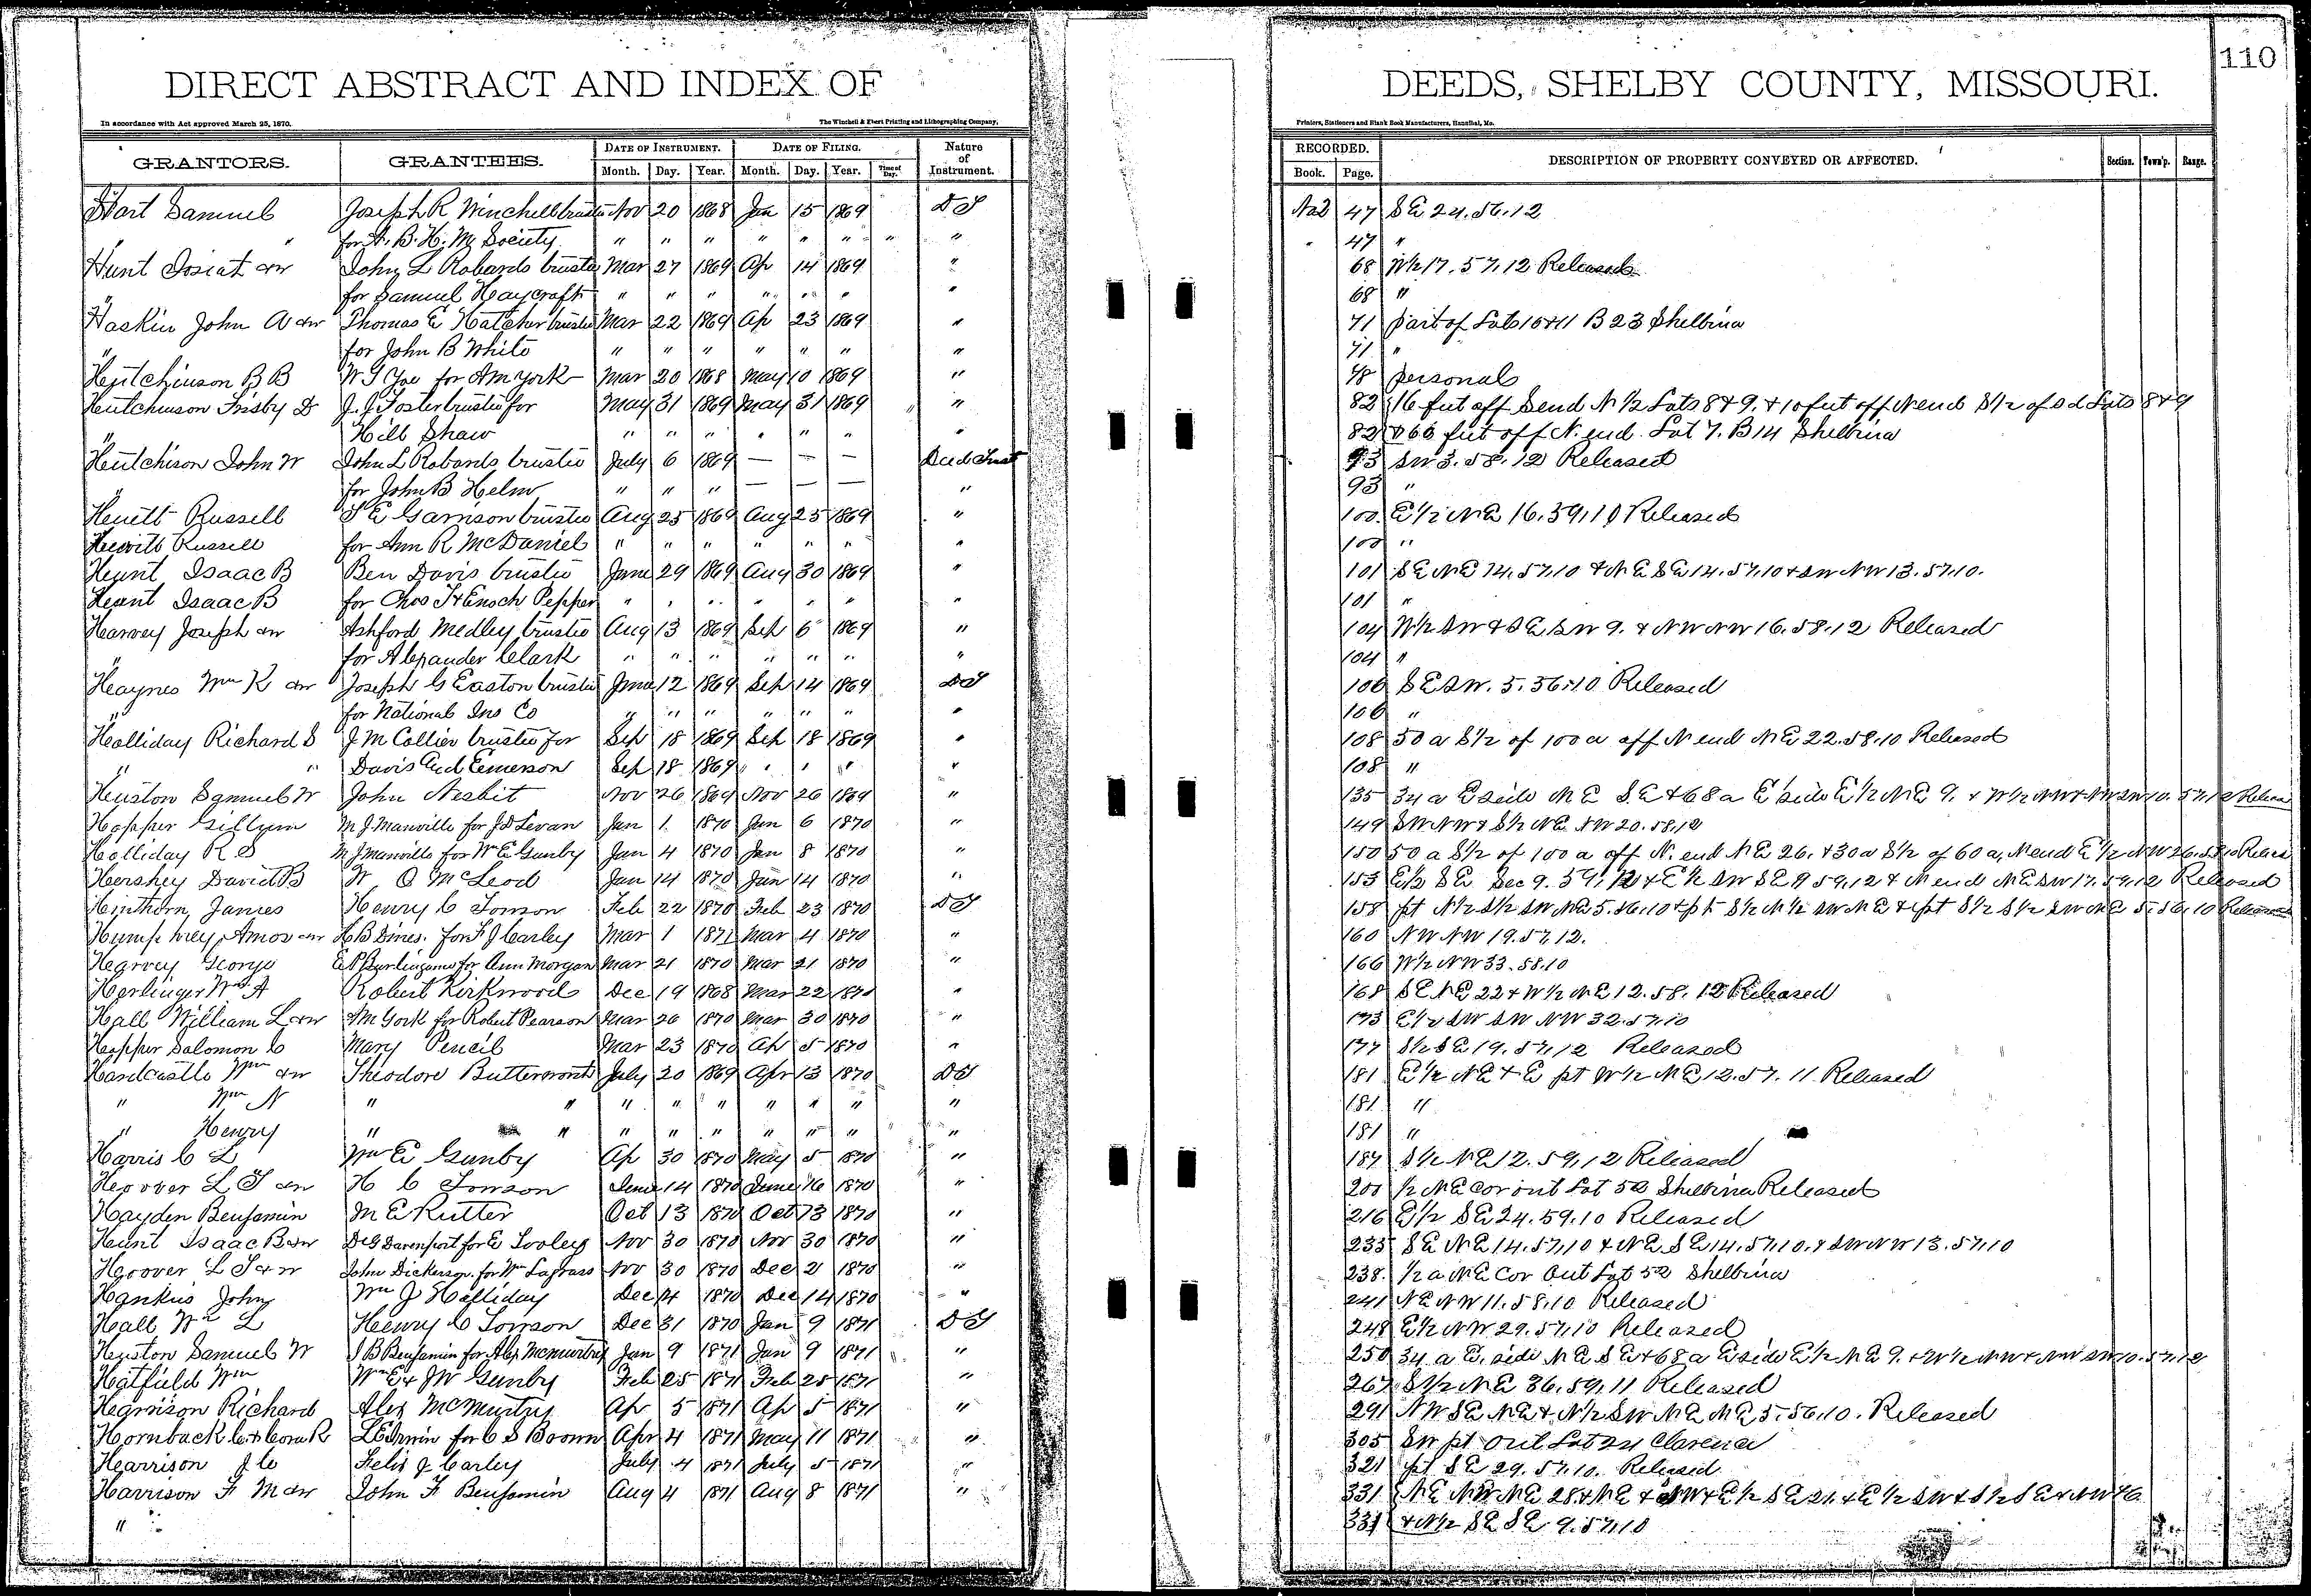 110
DIRECT ABSTRACT AND INDEX OF DEEDS, SHELBY COUNTY, MISSOURI.
In accordance with Act approved March 25, 1870. The Winchell & Ebert Printing and Lithographing Company, Printers, Stationers and Blank Book Manufacturers, Hannibal, Mo.
GRANTORS. GRANTEES. DATE OF INSTRUMENT. DATE OF FILING. Nature of Instrument. RECORDED. DESCRIPTION OF PROPERTY CONVEYED OR AFFECTED. Section. Town'p. Range.
Month. Day. Year. Month. Day. Year. Time of Day. Book. Page.
Hart Samuel Joseph R Winchell trustee Nov 20 1868 Jan 15 1869 D T 47 S E 24.56.12
" for A. B. H. M Society " " " " " " " " " 47 "
Hunt Josiah &w John L Robards trustee Mar 27 1869 Ap 14 1869 " 68 W½ 17.57.12 Released
" for Samuel Haycraft " " " " " " " 68 "
Haskin John A &w Thomas E Hatcher trustee Mar 22 1869 Ap 23 1869 " 71 part of Lots 10 & 11 B 23 Shelbina
" for John B White " " " " " " " 71 "
Hutchinson B B W J Yoe for A m york Mar 20 1868 May 10 1869 " 78 personal
Hutchinson Frisby D J. J Foster trustee for May 31 1869 May 31 1869 " 82 16 feet off S end N ½ Lots 8 & 9. & 10 feet off N end S½ of sd Lots 8 & 9
" Hill Shaw " " " " " " " 82 & 66 feet off N. end Lot 7. B 14 Shelbina
Hutchison John W John L Robards trustee July 6 1869 — — — Deed Trust 93 SW 3.58.12 Released
" for John B Helm " " " — — — " 93 "
Hewitt Russell T E Garrison trustee Aug 25 1869 Aug 25 1869 " 100 E½ NE 16.59.10 Released
Hewitt Russell for Ann R McDaniel " " " " " " " 100 "
Hunt Isaac B Ben Davis trustee June 29 1869 Aug 30 1869 " 101 S E N E 14.57.10 & N E S E 14.57.10 & SW NW 13.57.10.
Hunt Isaac B for Chas T & Enoch Pepper " " " " " " " 101 "
Harvey Joseph &w Ashford Medley trustee Aug 13 1869 Sep 6 1869 " 104 W½ SW & S E SW 9. & NW NW 16.58.12 Released
" for Alexander Clark " " " " " " " 104 "
Haynes Wm K &w Joseph G Easton trustee June 12 1869 Sep 14 1869 D T 106 S E SW. 5.56.10 Released
" for National Ins Co " " " " " " " 106 "
Holliday Richard S J M Collier trustee for Sep 18 1869 Sep 18 1869 " 108 50 a S½ of 100 a off N end N E 22.58.10 Released
" " Davis and Emerson Sep 18 1869 " " " " 108 "
Huston Samuel W John Nesbit Nov 26 1869 Nov 26 1869 " 135 34 a E side N E S E & 68 a E side E½ N E 9. & W½ NW & NW SW 10.57.12 Released
Hopper Gillyum M J. Manville for J D Levan Jan 1 1870 Jan 6 1870 " 149 SW NW & S½ NE NW 20.58.12
Holliday R S M J Manville for Wm E Gunby Jan 4 1870 Jan 8 1870 " 150 50 a S½ of 100 a off N. end N E 26. & 30 a S½ of 60 a, N end E ½ NW 26.58.10 Released
Hershey David B W O McLeod Jan 14 1870 Jan 14 1870 " 153 E½ S E Sec 9.59.12 & E½ SW S E 9 59.12 & N end N E SW 17.59.12 Released
Hinthorn James Henry C Towson Feb 22 1870 Feb 23 1870 D T 158 pt N½ S½ SW N E 5.56.10 & pt S½ N½ SW N E & pt S½ S½ SW N E 5.56.10 Released
Humphrey Amos &w H B Dines. for F J Carley Mar 1 1871 Mar 4 1870 " 160 NW NW 19.57.12.
Harvey George E P Burlingame for Ann Morgan Mar 21 1870 Mar 21 1870 " 166 W½ NW 33.58.10
Herlinger Wm A Robert Kirkwood Dec 19 1868 Mar 22 1870 " 168 S E N E 22 & W½ N E 12.58.12 Released
Hall William L &w A M York for Robert Pearson Mar 26 1870 Mar 30 1870 " 173 E½ SW SW NW 32.57.10
Hopper Solomon C Mary Pencil Mar 23 1870 Ap 5 1870 " 177 S½ S E 19.57.12 Released
Hardcastle Wm &w Theodore Butterworth July 20 1869 Apr 13 1870 D T 181 E½ N E & E pt W½ N E 12.57.11 Released
" Wm N " " " " " " " " " 181 "
" Henry " " " " " " " " " 181 "
Harris C L Wm E Gunby Ap 30 1870 May 5 1870 " 187 S½ N E 12.59.12 Released
Hoover L T &w H C Towson June 14 1870 June 16 1870 " 200 ½ N E cor out Lot 52 Shelbina Released
Hayden Benjamin M E Rutter Oct 13 1870 Oct 13 1870 " 216 E½ S E 24.59.10 Released
Hunt Isaac B &w D G Davenport for E Tooley Nov 30 1870 Nov 30 1870 " 235 S E N E 14.57.10 & N E S E 14.57.10. & SW NW 13.57.10
Hoover L T & w John Dickerson for Wm Lagrass Nov 30 1870 Dec 2 1870 " 238. ½ a N E Cor Out Lot 52 Shelbina
Hankins John Wm J Holliday Dec 14 1870 Dec 14 1870 " 241 N E NW 11.58.10 Released
Hall Wm L Henry C Towson Dec 31 1870 Jan 9 1871 D T 248 E½ NW 29.57.10 Released
Huston Samuel W J B Benjamin for Alex McMurtry Jan 9 1871 Jan 9 1871 " 250 34 a E. side N E S E & 68 a E side E½ N E 9. & W½ NW & NW SW 10.57.12
Hatfield Wm Wm E & JW Gunby Feb 25 1871 Feb 25 1871 " 267 S½ N E 36.59.11 Released
Harrison Richard Alex McMurtry Ap 5 1871 Ap 5 1871 " 291 NW S E N E & N½ SW N E N E 5.56.10. Released
Hornback C. & Cora R L E Irwin for C S Boown Apr 4 1871 May 11 1871 " 305 SW pt Out Lot 24 Clarence
Harrison J C Felix J Carley July 4 1871 July 5 1871 " 321 pt S E 29.57.10. Released
Harrison F M &w John F Benjamin Aug 4 1871 Aug 8 1871 " 331 N E NW N E 28 & N E & NW & E½ S E 21 & E½ SW & S½ S E
" 331 & N½ S E S E 9.57.10